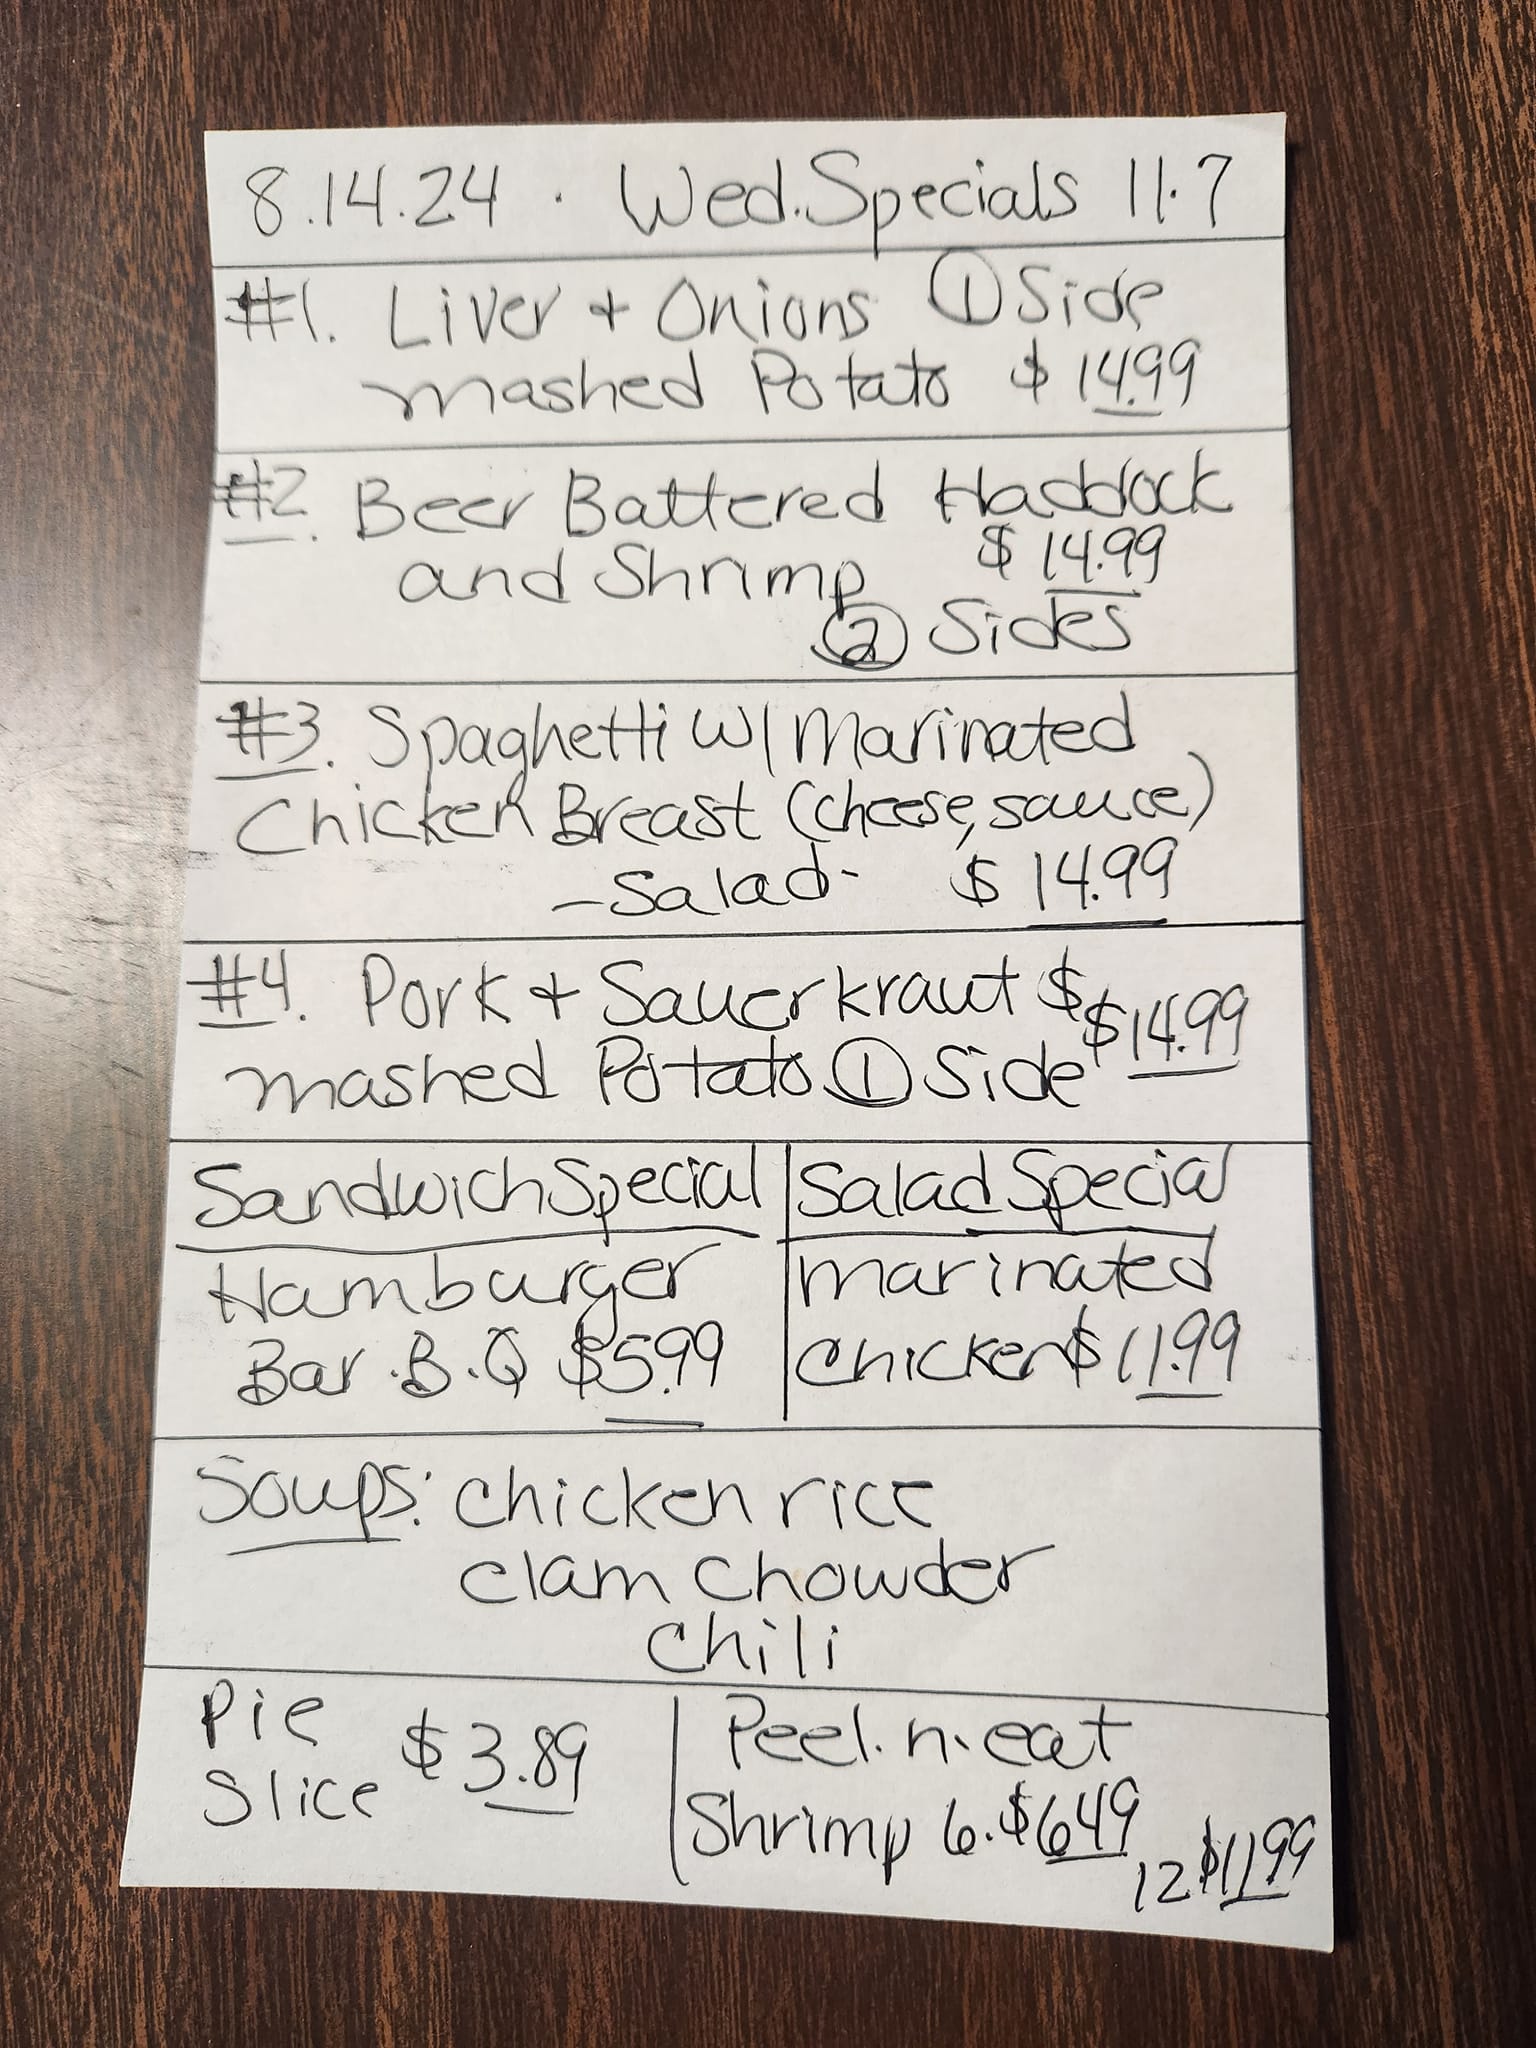 8.14.24 · Wed. Specials 11-7
#1. Liver + Onions ① Side
mashed Potato $14.99
#2. Beer Battered Haddock
and Shrimp $14.99
② Sides
#3. Spaghetti w/ Marinated
Chicken Breast (cheese, sauce)
-Salad- $14.99
#4. Pork + Sauerkraut $ $14.99
mashed Potato ① Side
Sandwich Special
Hamburger
Bar.B.Q $5.99
Salad Special
marinated
chicken $11.99
Soups: chicken rice
clam chowder
chili
Pie
Slice $3.89
Peel.n.eat
Shrimp 6.$6.49
12 $11.99